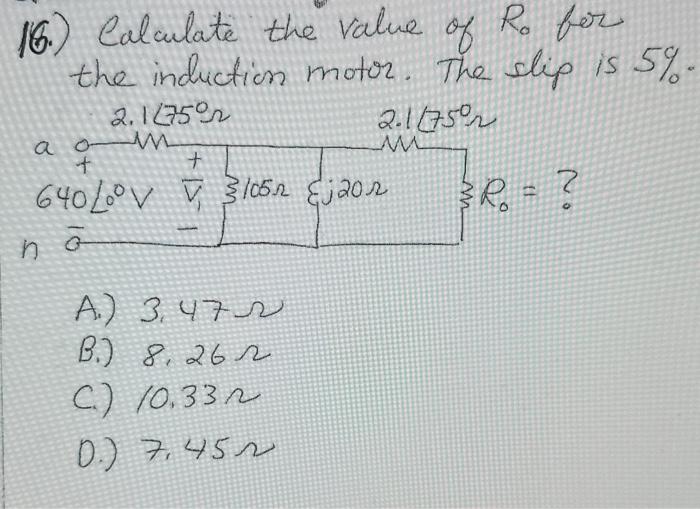 16.) Calculate the value of R₀ for
the induction motor. The slip is 5%.
2.1∠75°Ω 2.1∠75°Ω
a
+ +
640∠0°V V₁ 105Ω j20Ω R₀ = ?
- -
n
A.) 3.47Ω
B.) 8.26Ω
C.) 10.33Ω
D.) 7.45Ω